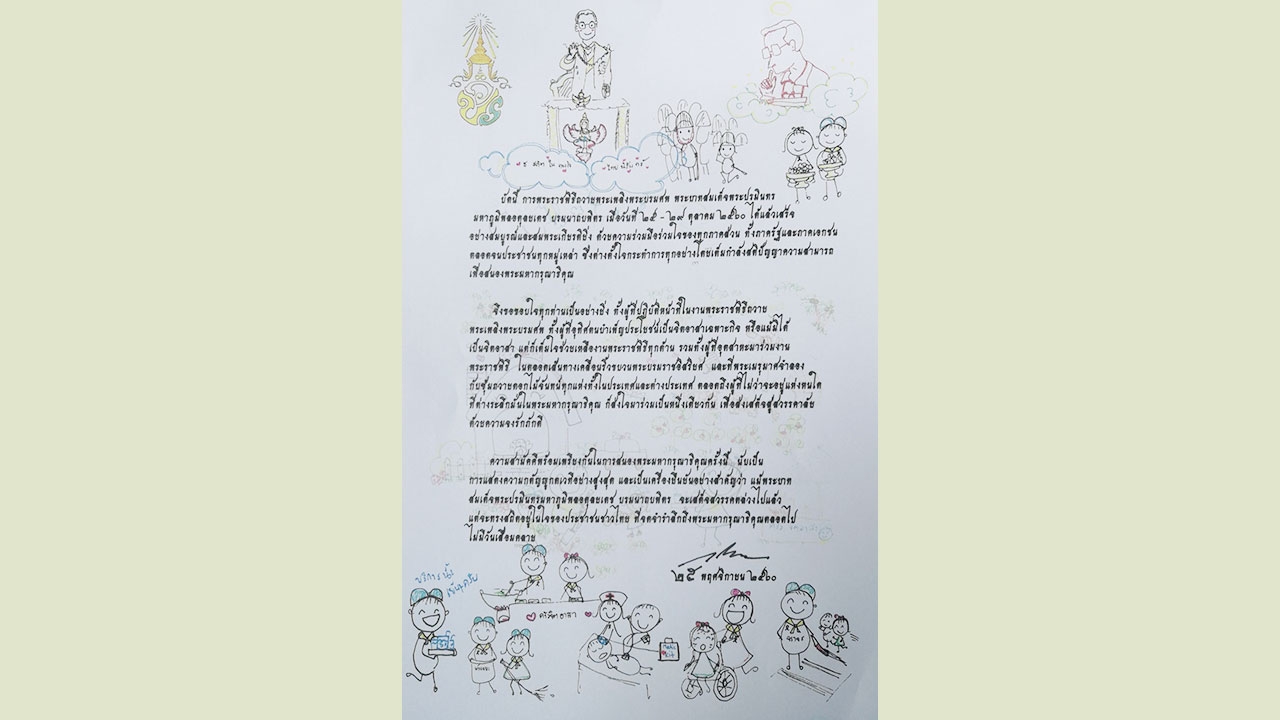 ธ สถิต ใน ดวงใจ
ไทย นิรันดร์
บัดนี้ การพระราชพิธีถวายพระเพลิงพระบรมศพ พระบาทสมเด็จพระปรมินทร
มหาภูมิพลอดุลยเดช บรมนาถบพิตร เมื่อวันที่ ๒๕ - ๒๙ ตุลาคม ๒๕๖๐ ได้แล้วเสร็จ
อย่างสมบูรณ์และสมพระเกียรติยิ่ง ด้วยความร่วมมือร่วมใจของทุกภาคส่วน ทั้งภาครัฐและภาคเอกชน
ตลอดจนประชาชนทุกหมู่เหล่า ซึ่งต่างตั้งใจกระทำการทุกอย่างโดยเต็มกำลังสติปัญญาความสามารถ
เพื่อสนองพระมหากรุณาธิคุณ
จึงขอขอบใจทุกท่านเป็นอย่างยิ่ง ทั้งผู้ที่ปฏิบัติหน้าที่ในงานพระราชพิธีถวาย
พระเพลิงพระบรมศพ ทั้งผู้ที่อุทิศตนบำเพ็ญประโยชน์เป็นจิตอาสาเฉพาะกิจ หรือแม้มิได้
เป็นจิตอาสา แต่ก็เต็มใจช่วยเหลืองานพระราชพิธีทุกด้าน รวมทั้งผู้ที่อุตสาหะมาร่วมงาน
พระราชพิธี ในตลอดเส้นทางเคลื่อนริ้วขบวนพระบรมราชอิสริยยศ และที่พระเมรุมาศจำลอง
กับซุ้มถวายดอกไม้จันทน์ทุกแห่งทั้งในประเทศและต่างประเทศ ตลอดถึงผู้ที่ไม่ว่าจะอยู่แห่งหนใด
ที่ต่างระลึกมั่นในพระมหากรุณาธิคุณ ก็ส่งใจมาร่วมเป็นหนึ่งเดียวกัน เพื่อส่งเสด็จสู่สวรรคาลัย
ด้วยความจงรักภักดี
ความสามัคคีพร้อมเพรียงกันในการสนองพระมหากรุณาธิคุณครั้งนี้ นับเป็น
การแสดงความกตัญญูกตเวทีอย่างสูงสุด และเป็นเครื่องยืนยันอย่างสำคัญว่า แม้พระบาท
สมเด็จพระปรมินทรมหาภูมิพลอดุลยเดช บรมนาถบพิตร จะเสด็จสวรรคตล่วงไปแล้ว
แต่จะทรงสถิตอยู่ในใจของประชาชนชาวไทย ที่จดจำรำลึกถึงพระมหากรุณาธิคุณตลอดไป
ไม่มีวันเสื่อมคลาย
๒๕ พฤศจิกายน ๒๕๖๐
จิตอาสา
จราจร